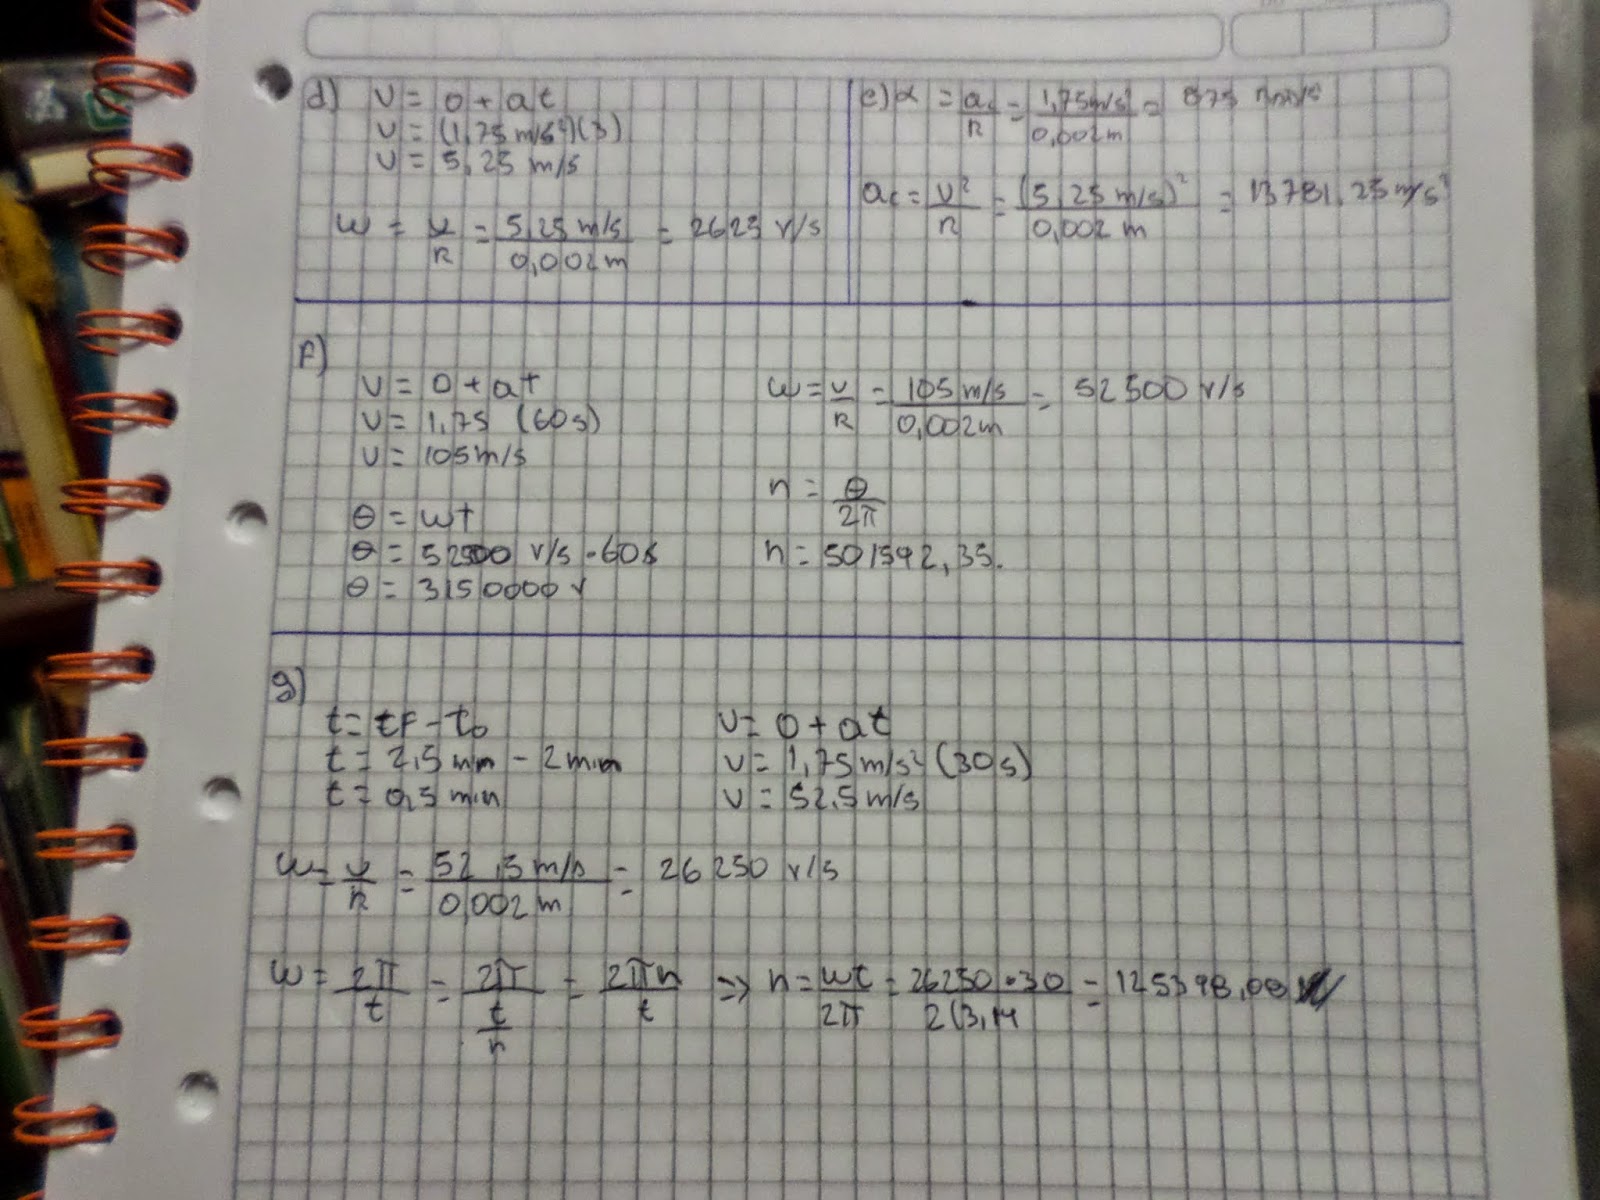 d) V = 0 + at
V = (1,75 m/s²)(3)
V = 5,25 m/s
ω = v/R = 5,25 m/s / 0,002m = 2625 r/s
e) α = a / R = 1,75m/s² / 0,002m = 875
ac = v²/R = (5,25 m/s)² / 0,002 m = 13781,25 m/s²
f)
V = 0 + at
V = 1,75 (60s)
V = 105m/s
θ = ωt
θ = 52500 r/s · 60s
θ = 3150000 r
ω = v/R = 105 m/s / 0,002m = 52500 r/s
n = θ / 2π
n = 501592,35.
g)
t = tF - to
t = 2,5 min - 2 min
t = 0,5 min
V = 0 + at
V = 1,75 m/s² (30s)
V = 52,5 m/s
ω = v/R = 52,5 m/s / 0,002 m = 26250 r/s
ω = 2π/t = 2π / t/n = 2πn / t => n = ωt / 2π = 26250 · 30 / 2(3,14 = 125398,08